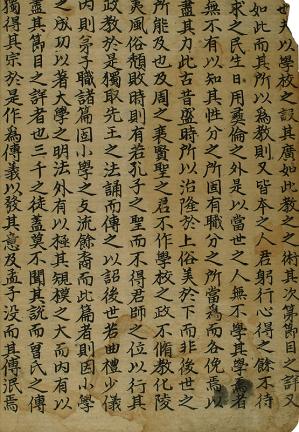 也夫以學校之設其廣如此教之之術其次第節目之詳又
如此而其所以為教則又皆本之人君躬行心得之餘不待
求之民生日用彝倫之外是以當世之人無不學其學焉者
無不有以知其性分之所固有職分之所當為而各俛焉以
盡其力此古昔盛時所以治隆於上俗美於下而非後世之
所能及也及周之衰賢聖之君不作學校之政不脩教化陵
夷風俗頹敗時則有若孔子之聖而不得君師之位以行其
政教於是獨取先王之法誦而傳之以詔後世若曲禮少儀
內則弟子職諸篇固小學之支流餘裔而此篇者則因小學
之成功以著大學之明法外有以極其規模之大而內有以
盡其節目之詳者也三千之徒蓋莫不聞其說而曾氏之傳
獨得其宗於是作為傳義以發其意及孟子沒而其傳泯焉